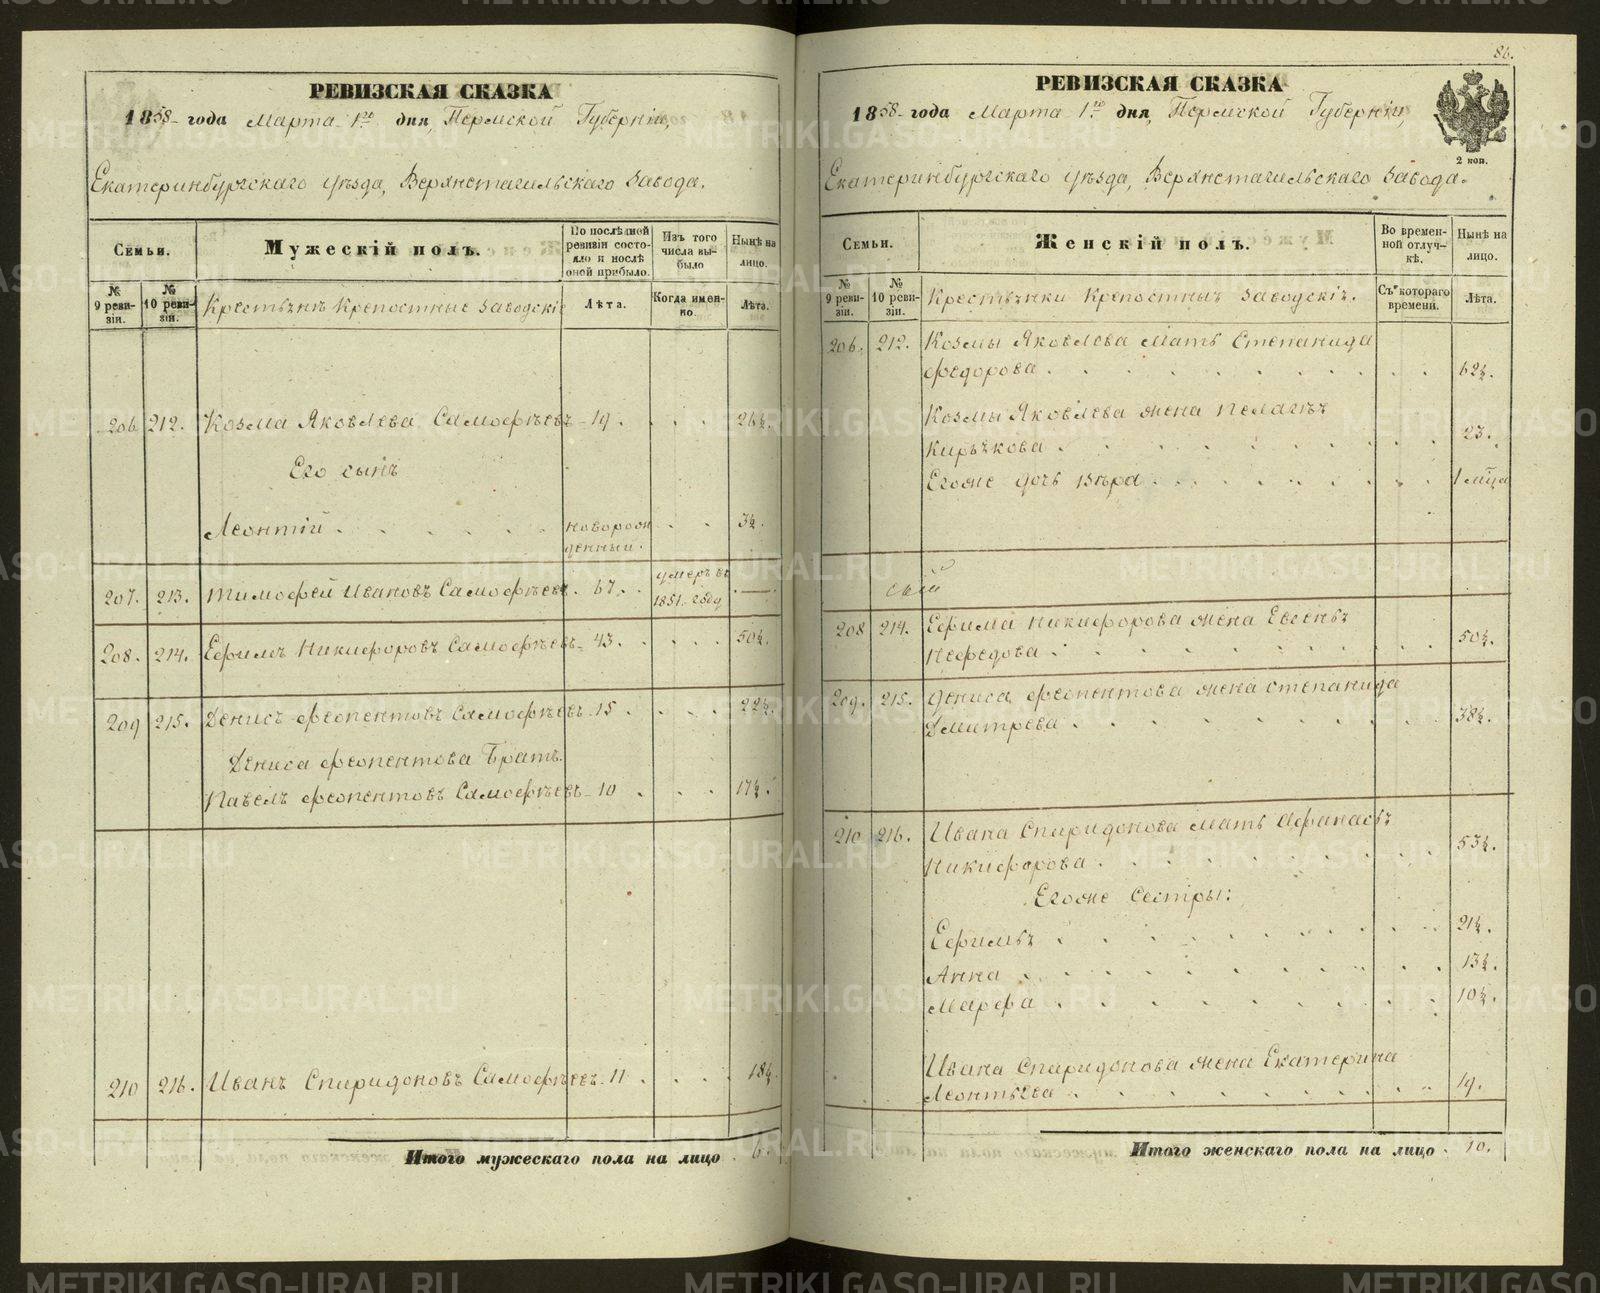 РЕВИЗСКАЯ СКАЗКА
1858 года Марта 1го дня, Пермской Губерніи,
Екатеринбургскаго уѣзда, Верхнетагильскаго Завода.
Семьи.
Мужескій полъ.
По послѣдней ревизіи состояло и послѣ оной прибыло.
Изъ того числа выбыло
Нынѣ на лицо.
№ 9 ревизіи.
№ 10 ревизіи.
Крестьянѣ Крепостные Заводскіе
Лѣта.
Когда именно.
Лѣта.
206 212. Козма Яковлева Самофѣевъ 19. 26½.
Его сынъ
Леонтій новорожденный. 3½.
207. 213. Тимофей Ивановъ Самофѣевъ. 67. умеръ въ 1851. году —
208. 214. Ефимъ Никифоровъ Самофѣевъ 43. 50½.
209 215. Денисъ Феопентовъ Самофѣевъ 15 22½.
Дениса Феопентова Братъ
Павелъ Феопентовъ Самофѣевъ 10 17½.
210 216. Иванъ Спиридоновъ Самофѣевъ 11 18½.
Итого мужескаго пола на лицо 6.
86.
РЕВИЗСКАЯ СКАЗКА
1858 года Марта 1го дня, Пермской Губерніи,
2 коп.
Екатеринбургскаго уѣзда, Верхнетагильскаго Завода.
Семьи.
Женскій полъ.
Во временной отлучкѣ.
Нынѣ на лицо.
№ 9 ревизіи.
№ 10 ревизіи.
Крестьянки Крепостныя Заводскія.
Съ котораго времени.
Лѣта.
206. 212. Козмы Яковлева мать Степанида
Федорова 62½.
Козмы Яковлева жена Пелагѣя
Кирьякова 23.
Егоже дочь Вѣра 1 мѣца
208 214. Ефима Никифорова жена Евгенья
Нефедова 50½.
209. 215. Дениса Феопентова жена Степанида
Дмитрева 38½.
210 216. Ивана Спиридонова мать Афанасья
Никифорова 53½.
Егоже Сестры:
Ефимья 21½.
Анна 13½.
Марфа 10½.
Ивана Спиридонова жена Екатерина
Леонтьева 19.
Итого женскаго пола на лицо 10.
METRIKI.GASO-URAL.RU